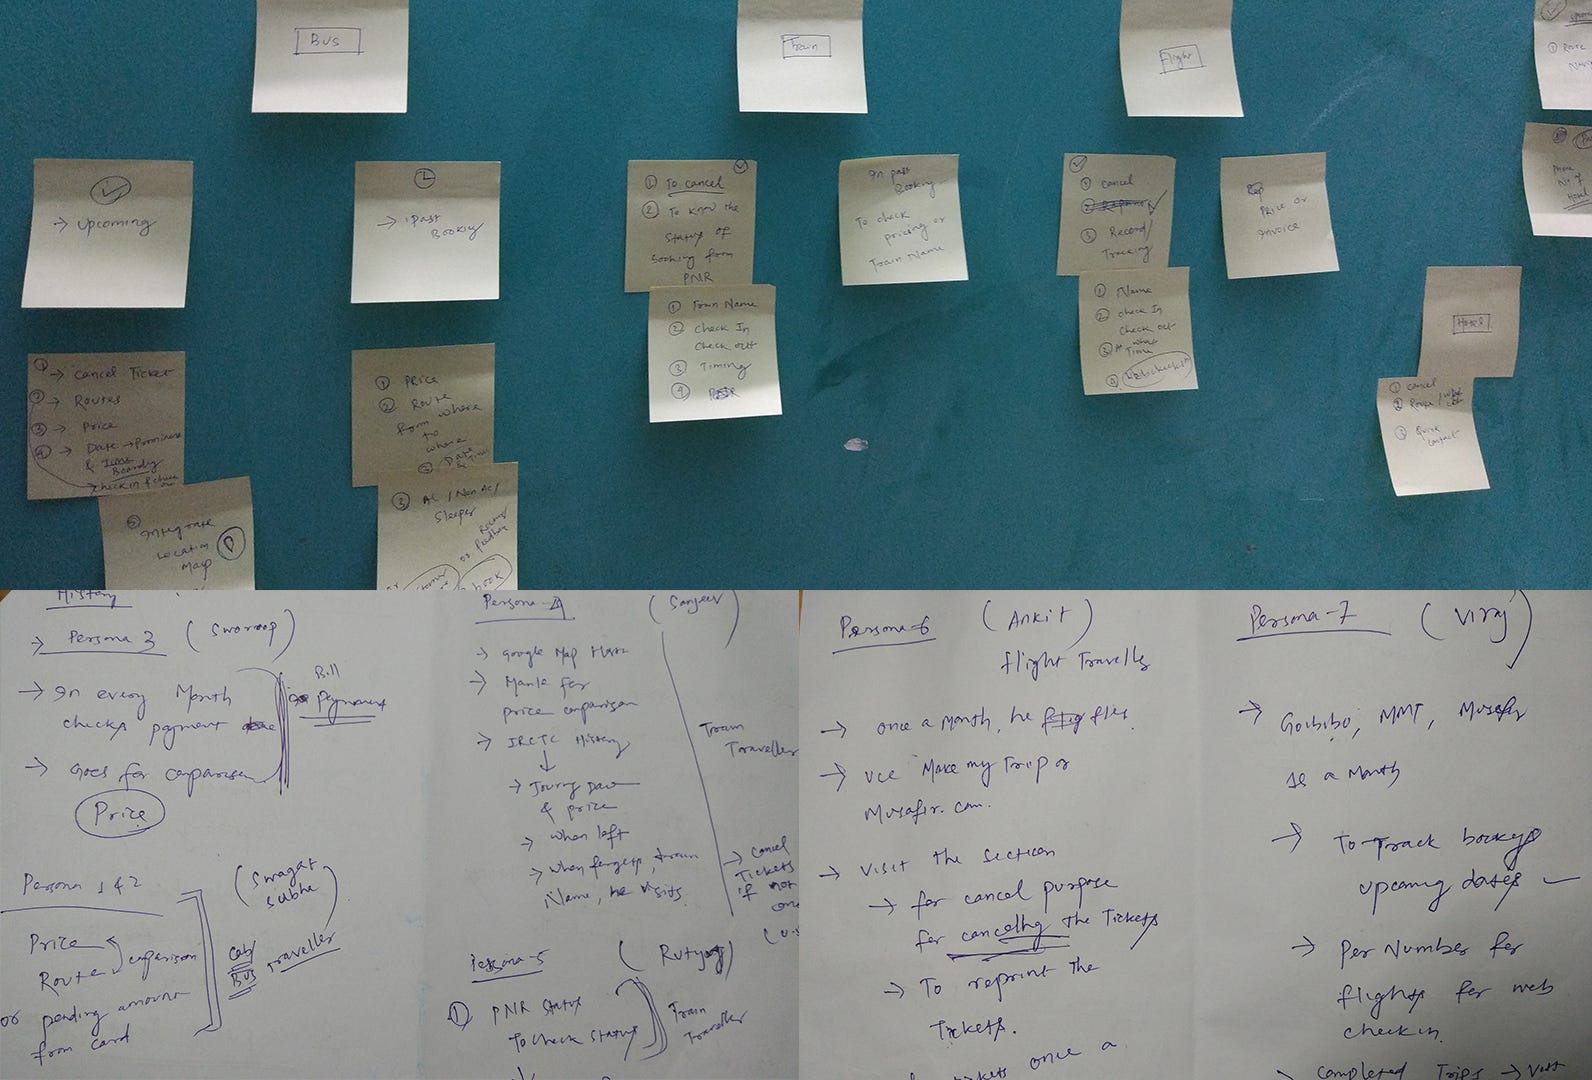 Bus
→ Upcoming
→ Past
Booking
① → Cancel Ticket
② → Routes
③ → Price
④ → Date → Prominent
& Time
Boarding
check in & check
⑤ Integrate
Location
Map
① Price
② Route
from where
to
where
Date
& Time
③ AC / Non AC /
Sleeper
Train
① To cancel
② To know the
status of
booking from
PNR
① Train Name
② Check In
Check out
③ Timing
④
In past
Booking
To check
pricing or
Train Name
Flight
① cancel
③ Record/
Tracking
① Name
② Check In
Check out
③ At what
Time
④
Price or
Invoice
① Route
Phone
No of
Hotel
Hotel
① Cancel
② Route /
③ Quick
contact
History
→ Persona 3 (Swaroop)
→ In every Month
checks payment
Bill
Payment
→ Goes for comparison
Price
Persona 1 & 2
(Swagat
Subha)
Price
Route comparison
or pending amount
from card
Cab/
Bus
Traveller
Persona-4 (Sanjeev)
→ Google Map
→ for
price comparison
→ IRCTC History
↓
→ Date
& price
→ When left
→ When forgets, train
Name, he visits.
Train
Traveller
→ Cancel
Tickets
if not
Persona-5
① PNR Status
To check status
Train
Traveller
Persona-6 (Ankit)
flight Traveller
→ once a month, he flies.
→ Use Make my Trip or
Musafir.com.
→ Visit the section
→ for cancel purpose
for cancelling the Tickets
→ To reprint the
Tickets.
tickets once a
Persona-7 (Viraj)
→ Goibibo, MMT, Musafir
is a Month
→ To Track bookings
upcoming dates
→ Number for
flights for web
check in.
→ Completed Trips → Visit